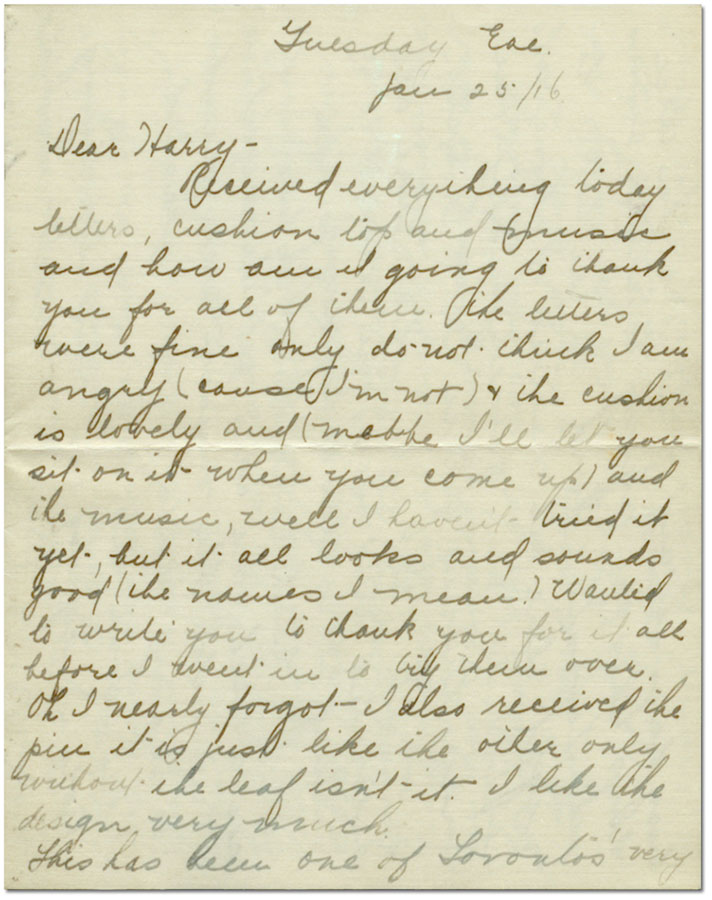 Tuesday Eve.
Jan 25/16
Dear Harry-
Received everything today
letters, cushion top and music
and how am I going to thank
you for all of them. The letters
were fine only do not think I am
angry (cause I'm not) & the cushion
is lovely and (mebbe I'll let you
sit on it when you come up) and
the music, well I haven't tried it
yet, but it all looks and sounds
good (the names I mean.) Wanted
to write you to thank you for it all
before I went in to try them over.
Oh I nearly forgot - I also received the
pin it is just like the other only
without the leaf isn't it. I like the
design very much.
This has been one of Toronto's' very